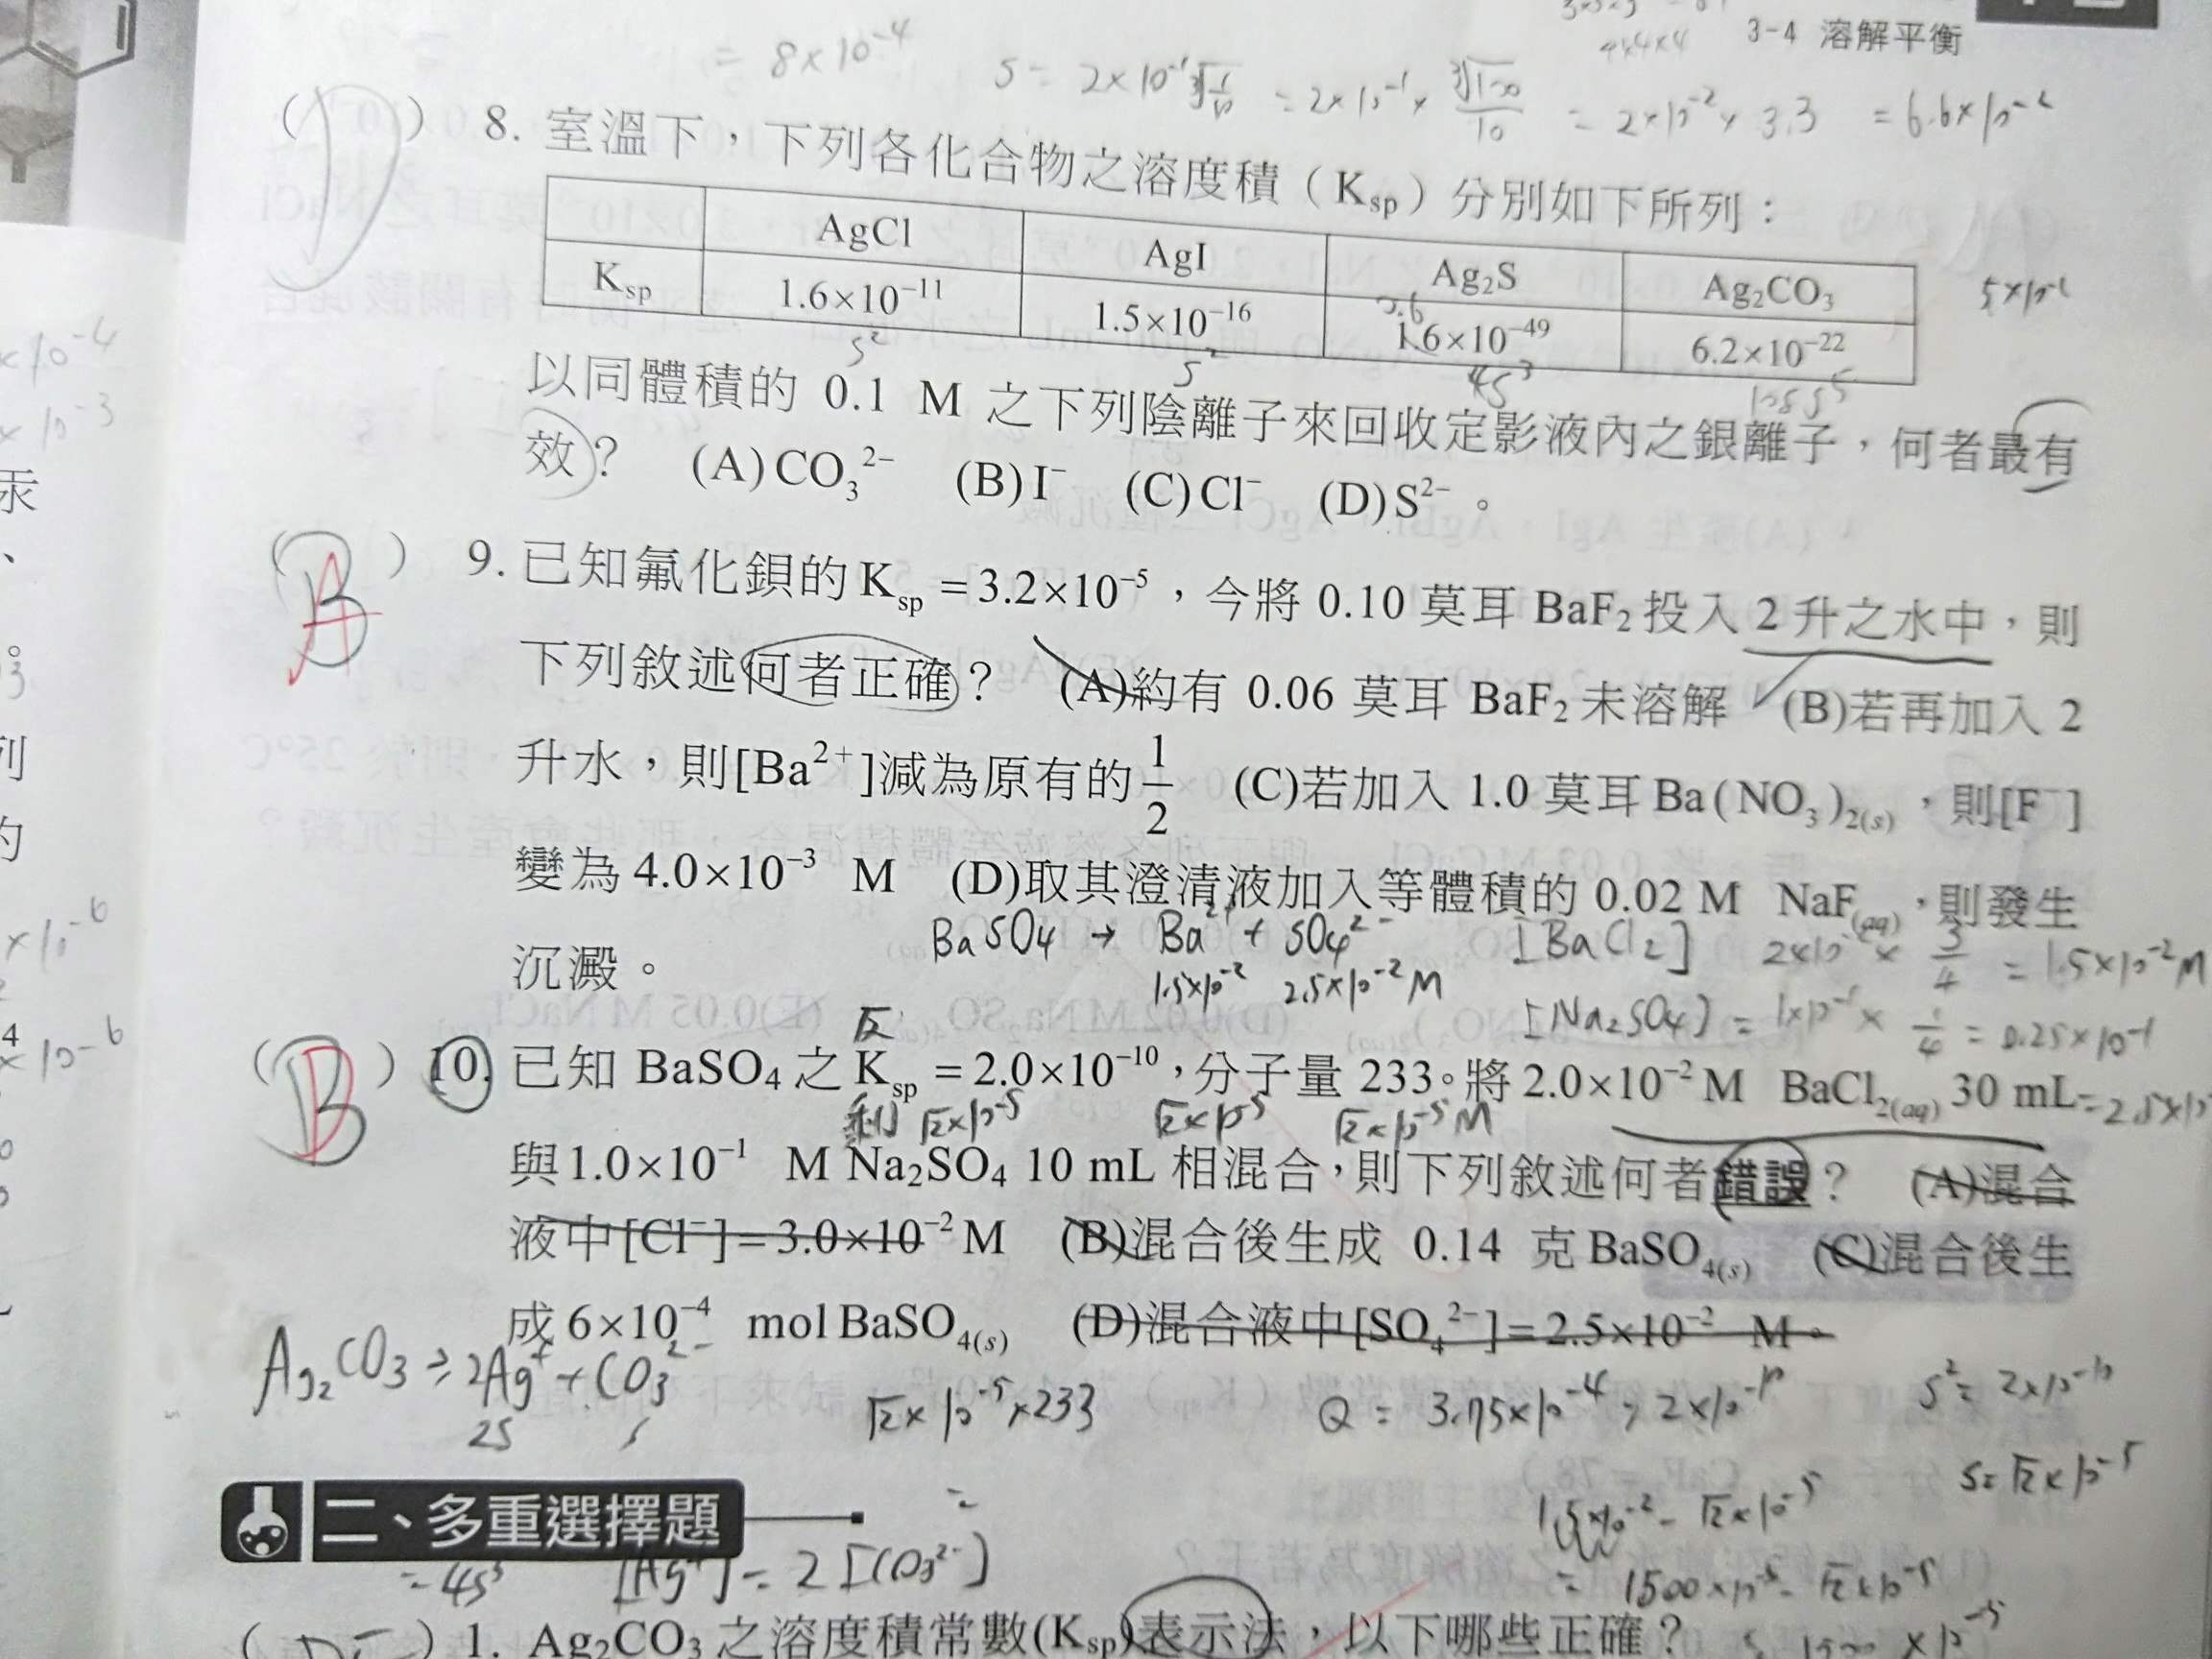 3-4 溶解平衡
= 8×10⁻⁴
S = 2×10⁻¹ ∛(1/10) = 2×10⁻¹ × ∛100/10 = 2×10⁻² × 3.3 = 6.6×10⁻²
(D) 8. 室溫下，下列各化合物之溶度積（Ksp）分別如下所列：
AgCl AgI Ag₂S Ag₂CO₃
Ksp 1.6×10⁻¹¹ 1.5×10⁻¹⁶ 1.6×10⁻⁴⁹ 6.2×10⁻²²
s² s² 4s³ 108s⁵
以同體積的 0.1 M 之下列陰離子來回收定影液內之銀離子，何者最有
效？ (A)CO₃²⁻ (B)I⁻ (C)Cl⁻ (D)S²⁻。
(B A) 9. 已知氟化鋇的Ksp =3.2×10⁻⁵，今將 0.10 莫耳 BaF₂ 投入 2 升之水中，則
下列敘述何者正確？ (A)約有 0.06 莫耳 BaF₂ 未溶解 (B)若再加入 2
升水，則[Ba²⁺]減為原有的 1/2 (C)若加入 1.0 莫耳 Ba(NO₃)₂(s)，則[F⁻]
變為 4.0×10⁻³ M (D)取其澄清液加入等體積的 0.02 M NaF(aq)，則發生
沉澱。
BaSO₄ → Ba²⁺ + SO₄²⁻
1.5×10⁻² 2.5×10⁻² M
[BaCl₂] 2×10⁻² × 3/4 = 1.5×10⁻² M
[Na₂SO₄] = 1×10⁻¹ × 1/4 = 0.25×10⁻¹
(B) 10. 已知 BaSO₄ 之 Ksp =2.0×10⁻¹⁰，分子量 233。將 2.0×10⁻² M BaCl₂(aq) 30 mL
√2×10⁻⁵ √2×10⁻⁵ √2×10⁻⁵ M
與1.0×10⁻¹ M Na₂SO₄ 10 mL 相混合，則下列敘述何者錯誤？ (A)混合
液中[Cl⁻]=3.0×10⁻² M (B)混合後生成 0.14 克 BaSO₄(s) (C)混合後生
成 6×10⁻⁴ mol BaSO₄(s) (D)混合液中[SO₄²⁻]=2.5×10⁻² M。
Ag₂CO₃ ⇌ 2Ag⁺ + CO₃²⁻
2S S
√2×10⁻⁵×233
Q = 3.75×10⁻⁴ > 2×10⁻¹⁰
S² = 2×10⁻¹⁰
S = √2×10⁻⁵
1.5×10⁻² - √2×10⁻⁵
= 1500×10⁻⁵ - √2×10⁻⁵
二、多重選擇題
= 4S³ [Ag⁺] = 2[CO₃²⁻]
1. Ag₂CO₃ 之溶度積常數(Ksp)表示法，以下哪些正確？